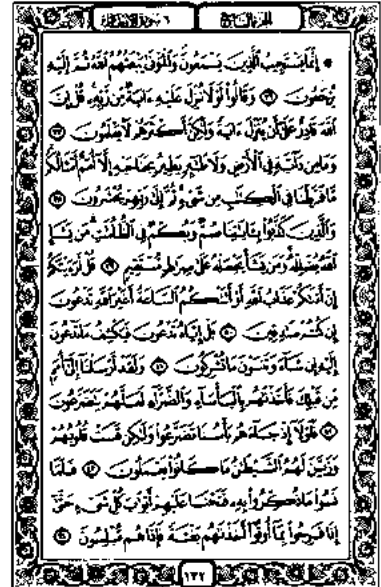 الجزء السابع
٦ سورة الأنعام
۞ إِنَّمَا يَسْتَجِيبُ الَّذِينَ يَسْمَعُونَ وَالْمَوْتَىٰ يَبْعَثُهُمُ اللَّهُ ثُمَّ إِلَيْهِ
يُرْجَعُونَ ٣٦ وَقَالُوا لَوْلَا نُزِّلَ عَلَيْهِ ءَايَةٌ مِّن رَّبِّهِ قُلْ إِنَّ
اللَّهَ قَادِرٌ عَلَىٰ أَن يُنَزِّلَ ءَايَةً وَلَٰكِنَّ أَكْثَرَهُمْ لَا يَعْلَمُونَ ٣٧
وَمَا مِن دَآبَّةٍ فِي الْأَرْضِ وَلَا طَٰٓئِرٍ يَطِيرُ بِجَنَاحَيْهِ إِلَّآ أُمَمٌ أَمْثَالُكُم
مَّا فَرَّطْنَا فِي الْكِتَٰبِ مِن شَيْءٍ ثُمَّ إِلَىٰ رَبِّهِمْ يُحْشَرُونَ ٣٨
وَالَّذِينَ كَذَّبُوا بِـَٔايَٰتِنَا صُمٌّ وَبُكْمٌ فِي الظُّلُمَٰتِ مَن يَشَإِ
اللَّهُ يُضْلِلْهُ وَمَن يَشَأْ يَجْعَلْهُ عَلَىٰ صِرَٰطٍ مُّسْتَقِيمٍ ٣٩ قُلْ أَرَءَيْتَكُمْ
إِنْ أَتَىٰكُمْ عَذَابُ اللَّهِ أَوْ أَتَتْكُمُ السَّاعَةُ أَغَيْرَ اللَّهِ تَدْعُونَ
إِن كُنتُمْ صَٰدِقِينَ ٤٠ بَلْ إِيَّاهُ تَدْعُونَ فَيَكْشِفُ مَا تَدْعُونَ
إِلَيْهِ إِن شَآءَ وَتَنسَوْنَ مَا تُشْرِكُونَ ٤١ وَلَقَدْ أَرْسَلْنَآ إِلَىٰٓ أُمَمٍ
مِّن قَبْلِكَ فَأَخَذْنَٰهُم بِالْبَأْسَآءِ وَالضَّرَّآءِ لَعَلَّهُمْ يَتَضَرَّعُونَ
٤٢ فَلَوْلَآ إِذْ جَآءَهُم بَأْسُنَا تَضَرَّعُوا وَلَٰكِن قَسَتْ قُلُوبُهُمْ
وَزَيَّنَ لَهُمُ الشَّيْطَٰنُ مَا كَانُوا يَعْمَلُونَ ٤٣ فَلَمَّا
نَسُوا مَا ذُكِّرُوا بِهِ فَتَحْنَا عَلَيْهِمْ أَبْوَٰبَ كُلِّ شَيْءٍ حَتَّىٰٓ
إِذَا فَرِحُوا بِمَآ أُوتُوٓا أَخَذْنَٰهُم بَغْتَةً فَإِذَا هُم مُّبْلِسُونَ ٤٤
١٣٢